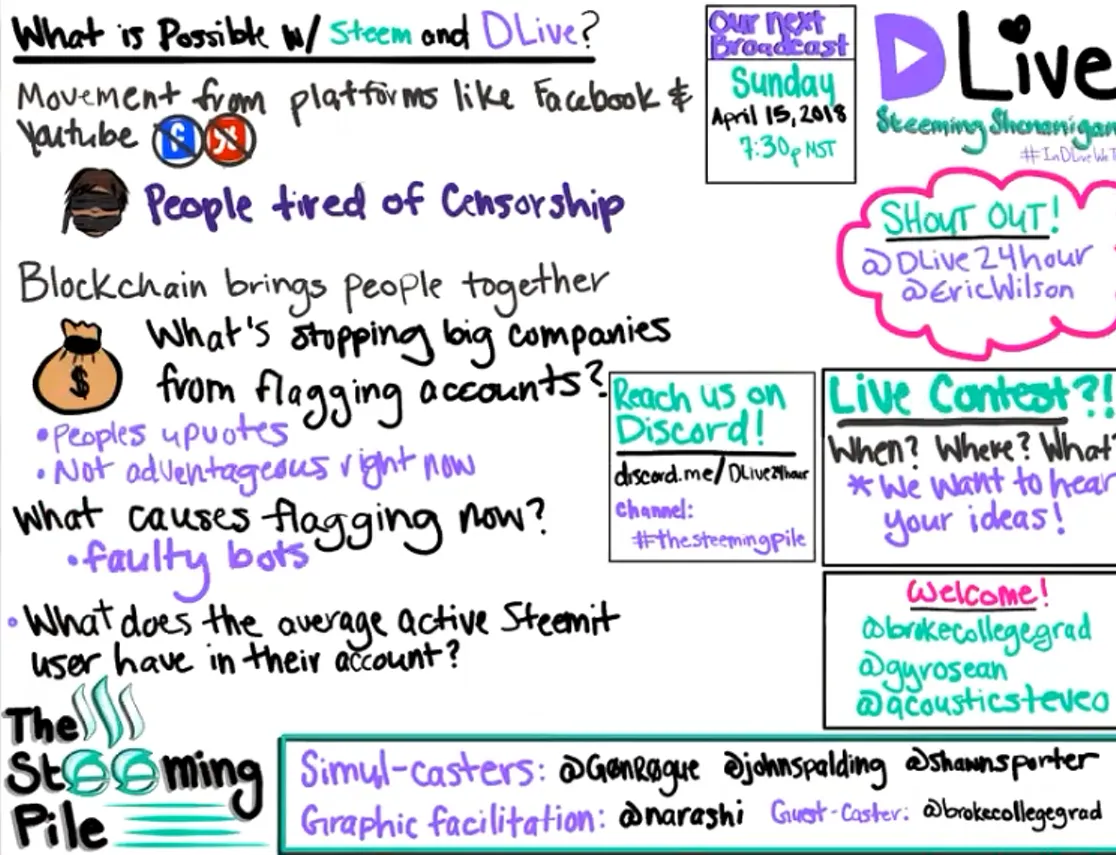 What is Possible w/ Steem and DLive?
Movement from platforms like Facebook &
Youtube
People tired of Censorship
Blockchain brings people together
What's stopping big companies
from flagging accounts?
$
• Peoples upvotes
• Not adventageous right now
What causes flagging now?
• faulty bots
• What does the average active Steemit
user have in their account?
Our next
Broadcast
Sunday
April 15, 2018
7:30p MST
DLive
Steeming Shenanigan
#InDLiveWeT
SHOUT OUT!
@DLive24hour
@EricWilson
Reach us on
Discord!
discord.me/DLive24hour
channel:
#thesteemingpile
Live Contest?!
When? Where? What?
* We want to hear
your ideas!
Welcome!
@brokecollegegrad
@gyrosean
@acousticsteveo
The
Steeming
Pile
Simul-casters: @GønRøgue @johnspalding @shawnsporter
Graphic facilitation: @narashi Guest-Caster: @brokecollegegrad